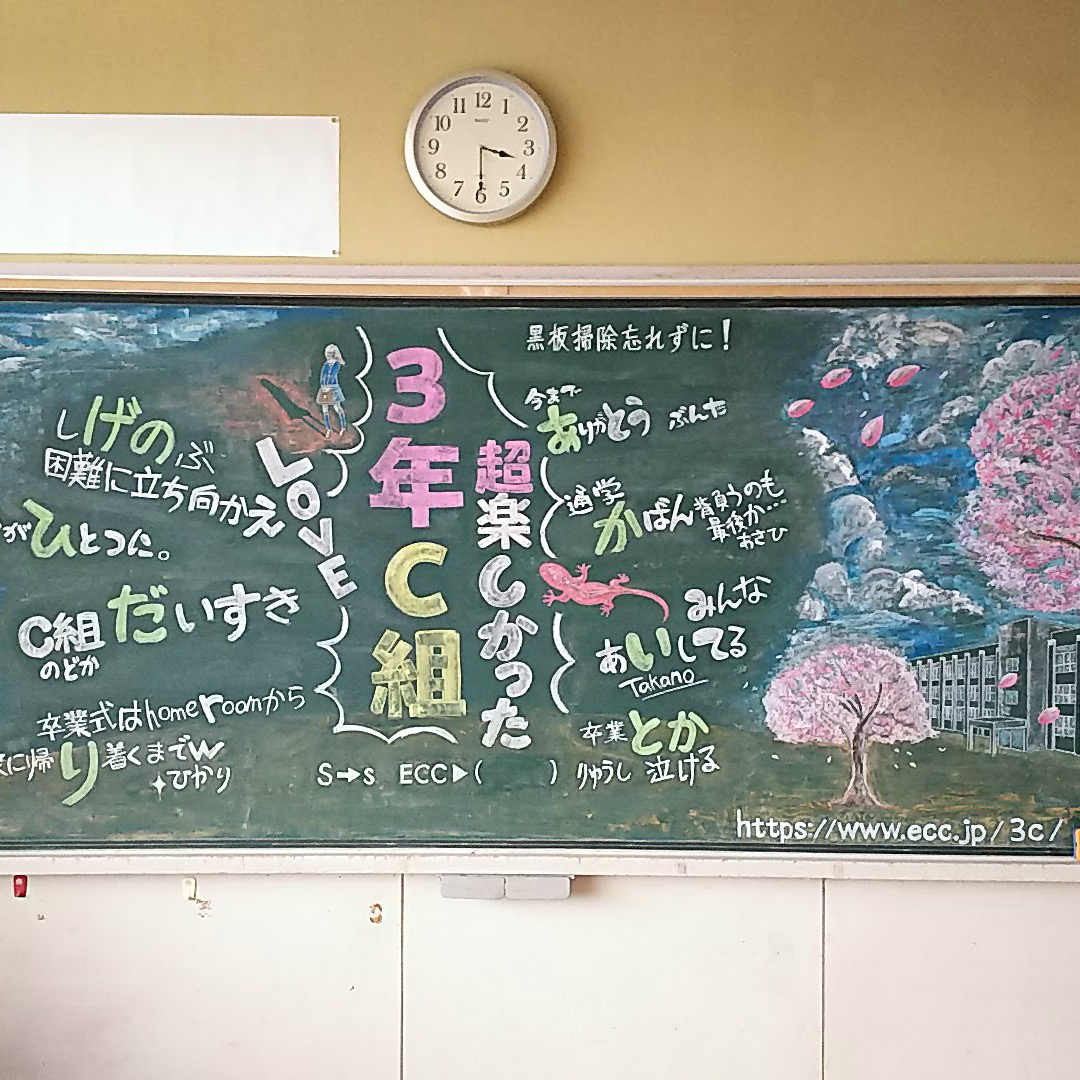 11 12 1
10 2
9 3
8 4
7 6 5
黒板掃除忘れずに!
3年C組
超楽しかった
LOVE
しげのぶ
困難に立ち向かえ
がひとつに。
C組だいすき
のどか
卒業式はhomeroomから
に帰り着くまでw
ひかり
今まで
ありがとう ぶんた
通学
かばん背負うのも
最後か…
あさひ
みんな
あいしてる
Takano
卒業とか
りゅうし 泣ける
S→s ECC▶( )
https://www.ecc.jp/3c/